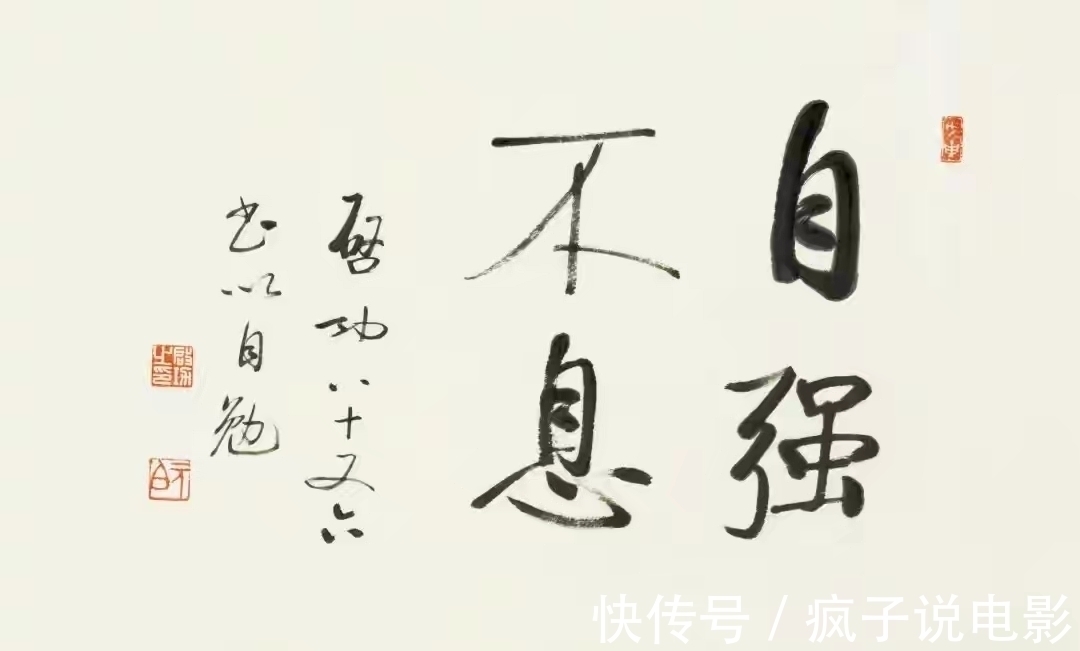 自强
不息
启功八十又六
书以自勉
快传号/疯子说电影